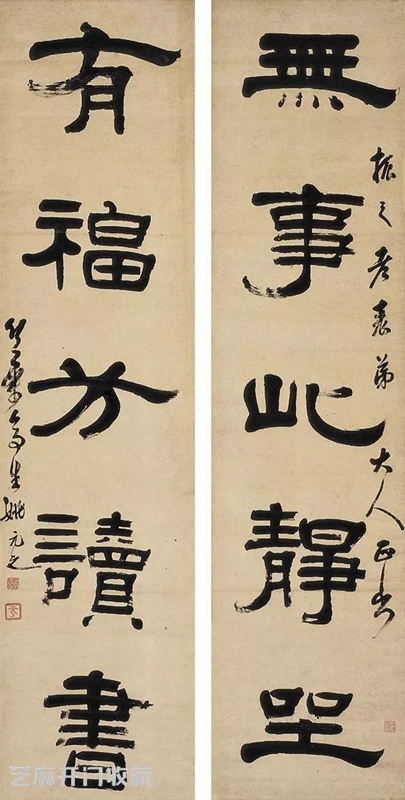 無事此靜坐
振之老表弟大人正書
有福方讀書
竹葉亭生姚元之
芝麻开门收藏